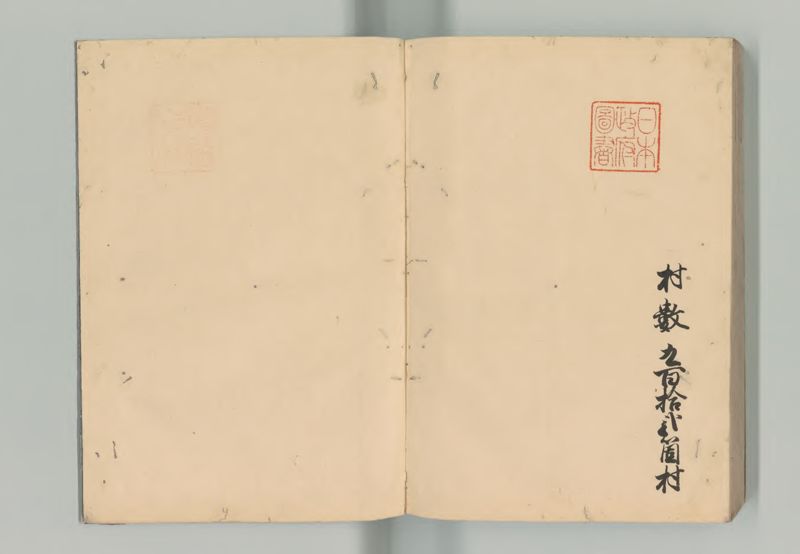 日本
政府
圖書
村數九百拾弐箇村